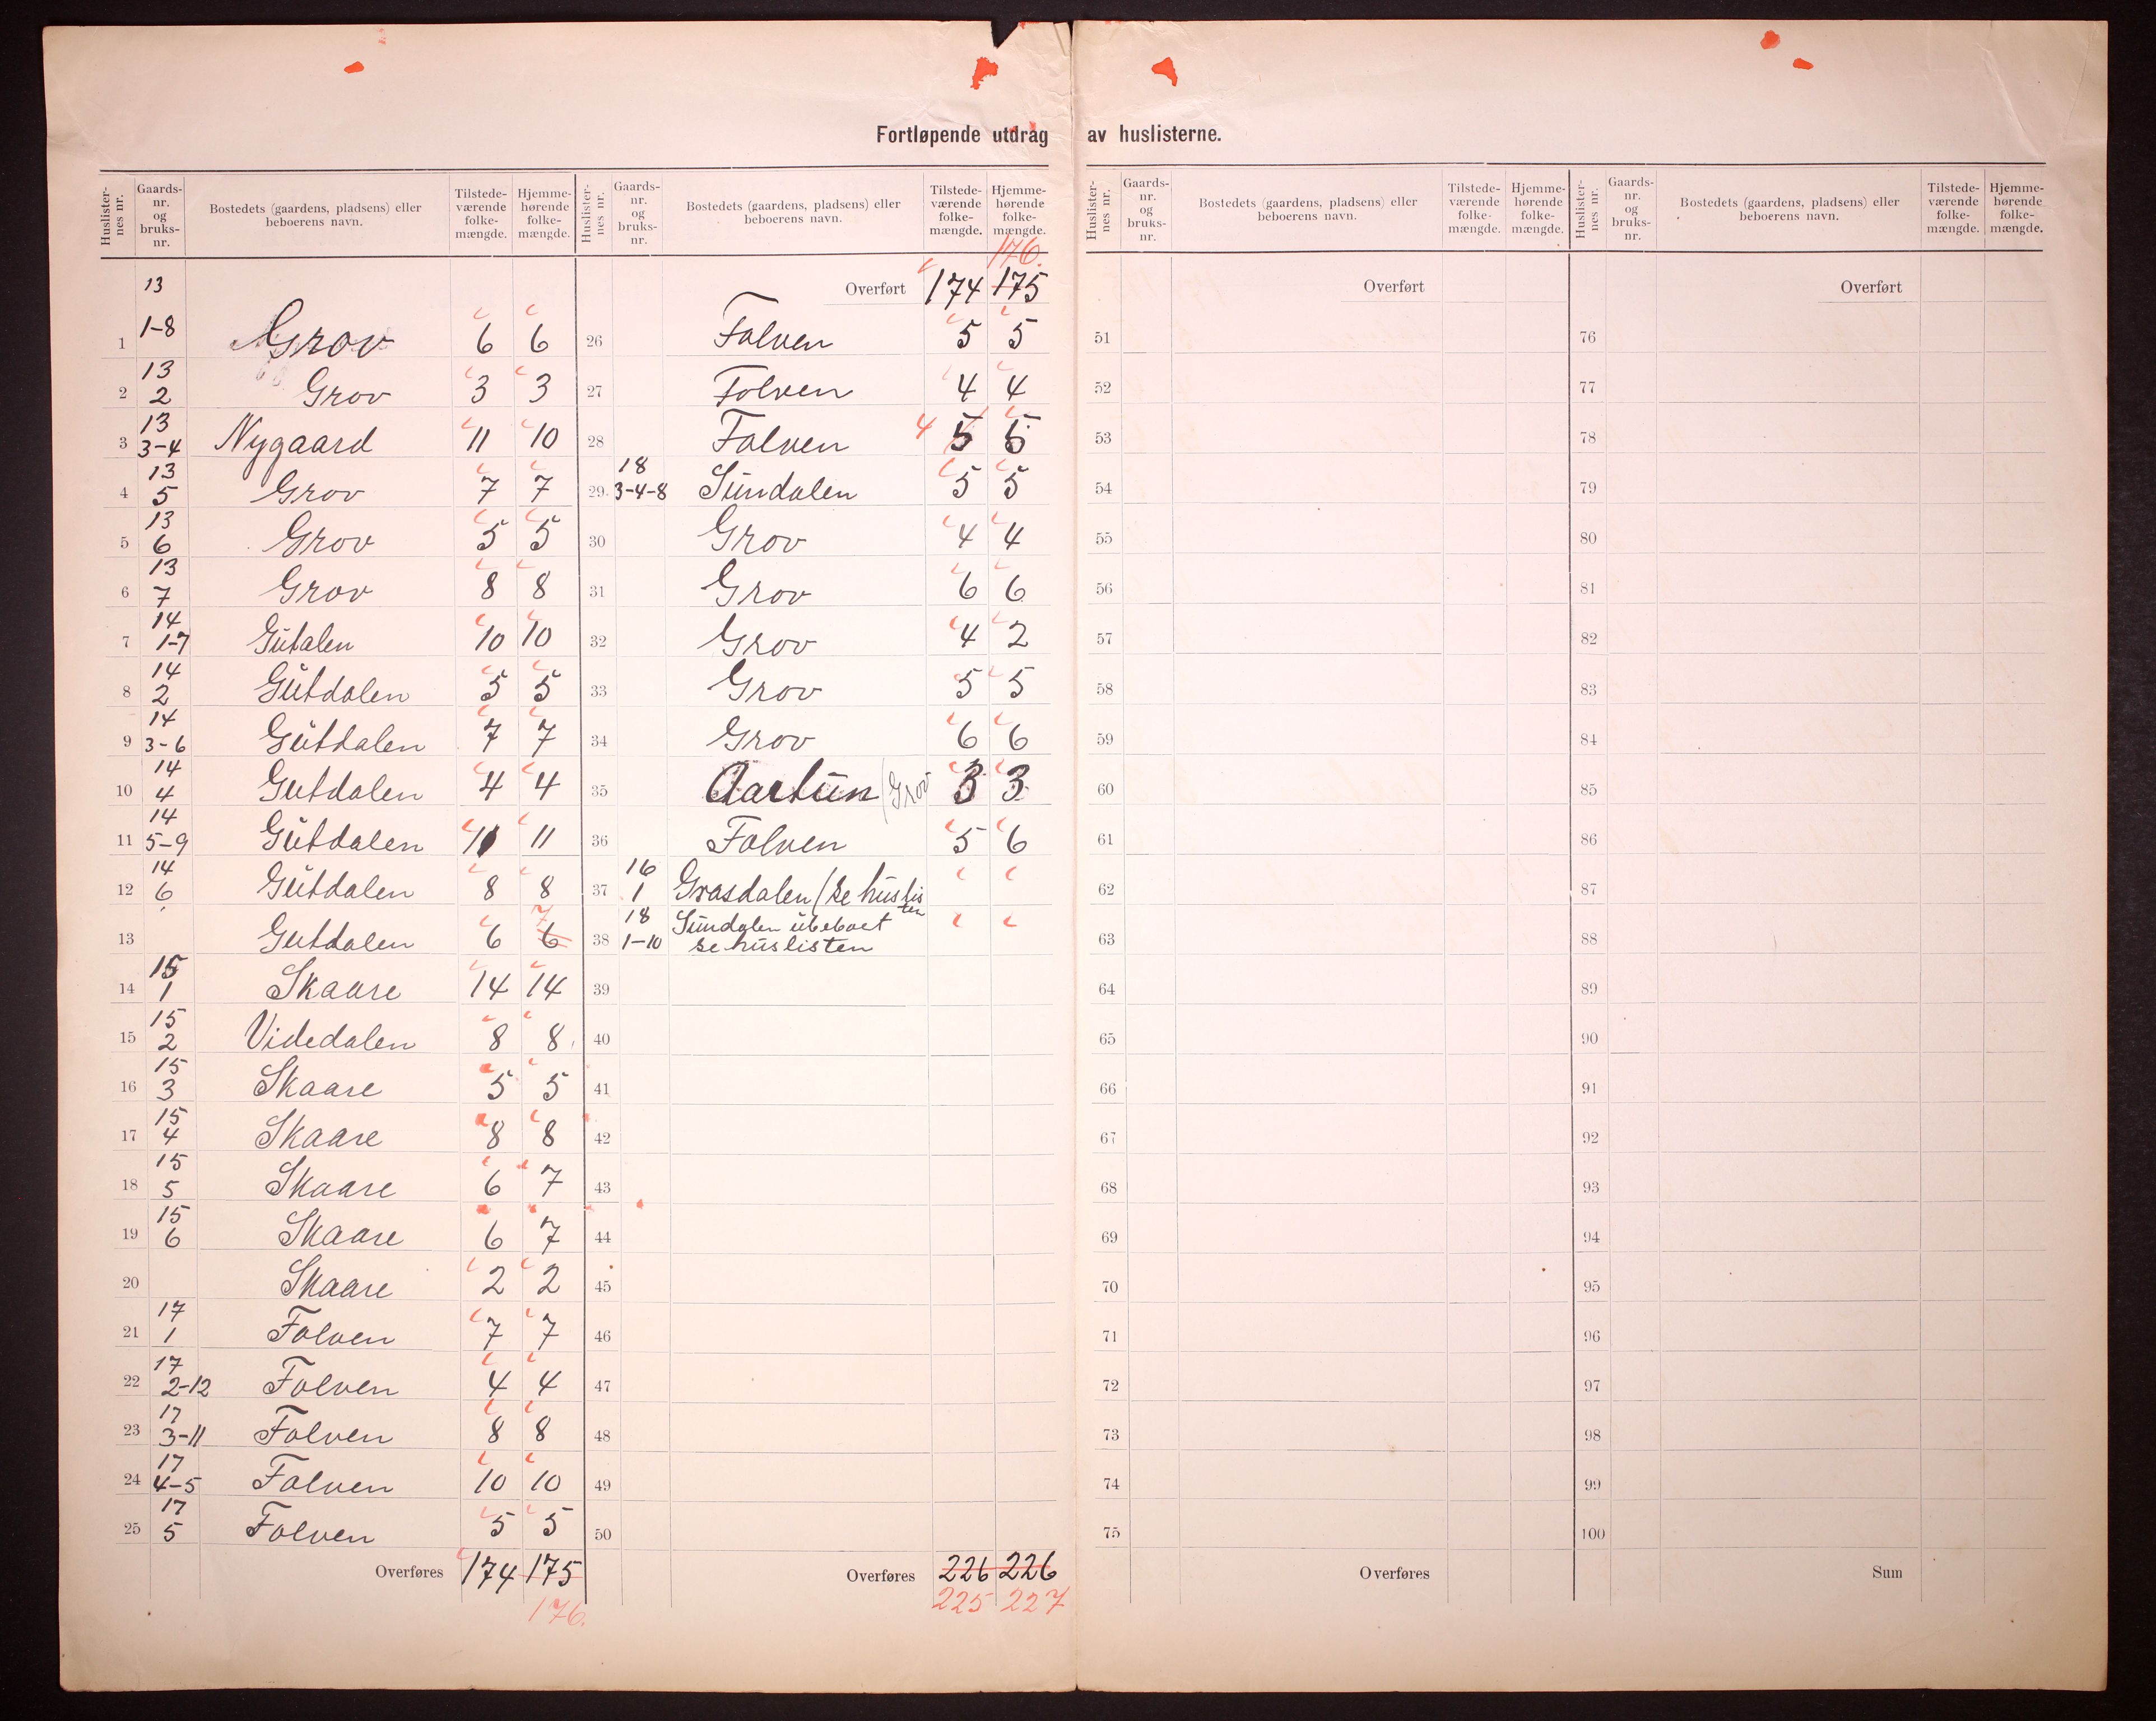 Fortløpende utdrag av huslisterne.
Huslister-nes nr. Gaards-nr. og bruks-nr. Bostedets (gaardens, pladsens) eller beboerens navn. Tilstede-værende folke-mængde. Hjemme-hørende folke-mængde.
13
1 1-8 Grov 6 6
2 13 2 Grov 3 3
3 13 3-4 Nygaard 11 10
4 13 5 Grov 7 7
5 13 6 Grov 5 5
6 13 7 Grov 8 8
7 14 1-7 Gutalen 10 10
8 14 2 Gutdalen 5 5
9 14 3-6 Gutdalen 7 7
10 14 4 Gutdalen 4 4
11 14 5-9 Gutdalen 11 11
12 14 6 Gutdalen 8 8
13 Gutdalen 6 6 7
14 15 1 Skaare 14 14
15 15 2 Videdalen 8 8
16 15 3 Skaare 5 5
17 15 4 Skaare 8 8
18 15 5 Skaare 6 7
19 15 6 Skaare 6 7
20 Skaare 2 2
21 17 1 Folven 7 7
22 17 2-12 Folven 4 4
23 17 3-11 Folven 8 8
24 17 4-5 Folven 10 10
25 17 5 Folven 5 5
Overføres 174 175
176.
Huslister-nes nr. Gaards-nr. og bruks-nr. Bostedets (gaardens, pladsens) eller beboerens navn. Tilstede-værende folke-mængde. Hjemme-hørende folke-mængde.
176.
Overført 174 175
26 Folven 5 5
27 Folven 4 4
28 Folven 4 5 5
29 18 3-4-8 Sundalen 5 5
30 Grov 4 4
31 Grov 6 6
32 Grov 4 2
33 Grov 5 5
34 Grov 6 6
35 Aartun (Grov 3 3
36 Folven 5 6
37 16 1 Grasdalen (se huslisten
38 18 1-10 Sundalen ubeboet
se huslisten
39
40
41
42
43
44
45
46
47
48
49
50
Overføres 226 226
225 227
Huslister-nes nr. Gaards-nr. og bruks-nr. Bostedets (gaardens, pladsens) eller beboerens navn. Tilstede-værende folke-mængde. Hjemme-hørende folke-mængde.
Overført
51
52
53
54
55
56
57
58
59
60
61
62
63
64
65
66
67
68
69
70
71
72
73
74
75
Overføres
Huslister-nes nr. Gaards-nr. og bruks-nr. Bostedets (gaardens, pladsens) eller beboerens navn. Tilstede-værende folke-mængde. Hjemme-hørende folke-mængde.
Overført
76
77
78
79
80
81
82
83
84
85
86
87
88
89
90
91
92
93
94
95
96
97
98
99
100
Sum